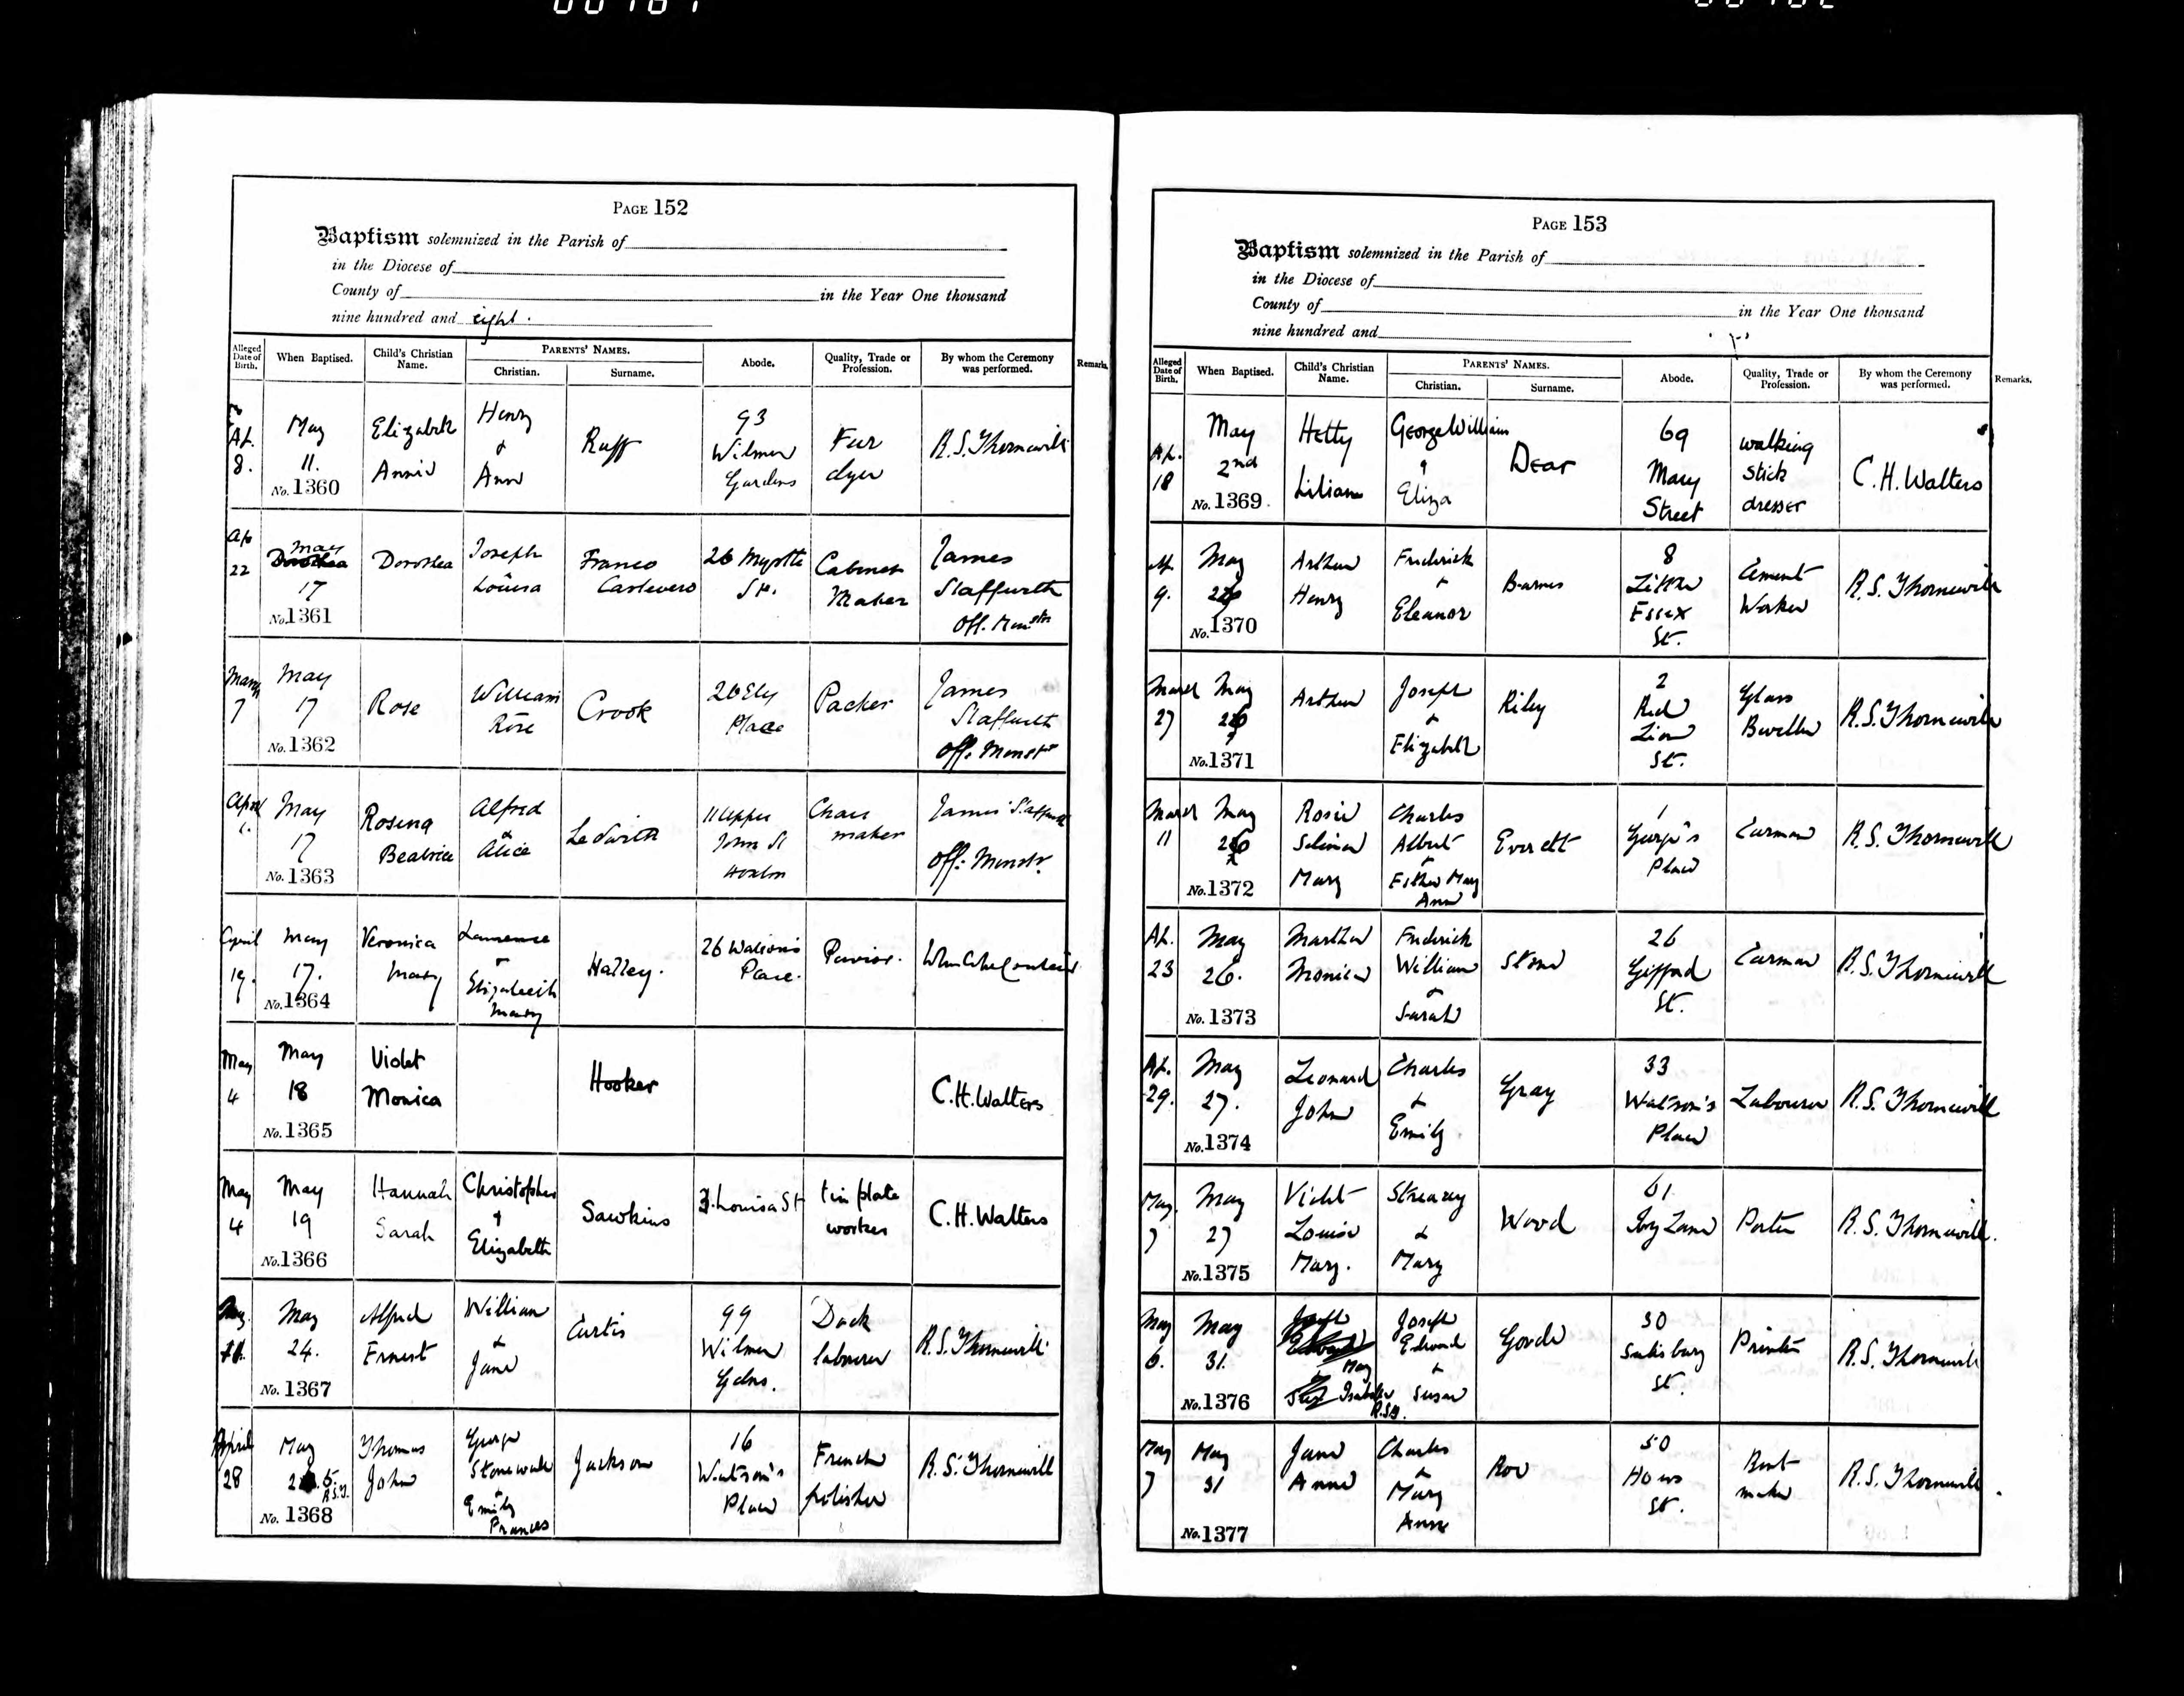 PAGE 152
Baptism solemnized in the Parish of
in the Diocese of
County of in the Year One thousand
nine hundred and eight.
Alleged Date of Birth. When Baptised. Child's Christian Name. PARENTS' NAMES. Christian. Surname. Abode. Quality, Trade or Profession. By whom the Ceremony was performed. Remarks.
Ap. 8. May 11. No. 1360 Elizabeth Annie Henry & Ann Ruff 93 Wilmer Gardens Fur dyer R.S. Thornewill
Ap 22 May 17 No. 1361 Dorothea Joseph Louisa Franco 26 Myrtle St. Cabinet Maker James Staffurth Off. Minstr
March 7 May 17 No. 1362 Rose William Rose Crook 26 Ely Place Packer James Staffurth Off. Minstr
April May 17 No. 1363 Rosina Beatrice Alfred & Alice 11 Upper John St Hoxton Chair maker James Staffurth Off. Minstr.
April 19. May 17. No. 1364 Veronica Mary Laurence & Elizabeth Mary Halley. 26 Watson's Place. Pavior.
May 4 May 18 No. 1365 Violet Monica Hooker C.H. Walters
May 4 May 19 No. 1366 Hannah Sarah Christopher & Elizabeth Sawkins 3. Louisa St tin plate worker C.H. Walters
May 24. No. 1367 Alfred Ernest William & Jane Curtis 99 Wilmer Gdns. Dock labourer R.S. Thornewill
April 28 May 25. R.S.T. No. 1368 Thomas John George Stonewall & Emily Frances Jackson 16 Watson's Place French polisher R.S. Thornewill
PAGE 153
Baptism solemnized in the Parish of
in the Diocese of
County of in the Year One thousand
nine hundred and
Alleged Date of Birth. When Baptised. Child's Christian Name. PARENTS' NAMES. Christian. Surname. Abode. Quality, Trade or Profession. By whom the Ceremony was performed. Remarks.
Ap. 18 May 2nd No. 1369 Hetty Lilian George William & Eliza Dear 69 Mary Street walking stick dresser C.H. Walters
Ap. 9. May 26 No. 1370 Arthur Henry Frederick & Eleanor Barnes 8 Little Essex St. Cement Worker R.S. Thornewill
March 27 May 26 No. 1371 Arthur Joseph & Elizabeth Riley 2 Red Lion St. Glass Beveller R.S. Thornewill
March 11 May 26 No. 1372 Rosie Selina Mary Charles Albert & Esther Mary Ann Everett 1 George's Place Carman R.S. Thornewill
Ap. 23 May 26. No. 1373 Martha Monica Frederick William & Sarah Stone 26 Gifford St. Carman R.S. Thornewill
Ap. 29. May 27. No. 1374 Leonard John Charles & Emily Gray 33 Watson's Place Labourer R.S. Thornewill
May 7 May 27 No. 1375 Violet Louise Mary. & Mary Wood 61 Ivy Lane Porter R.S. Thornewill.
May 6. May 31. No. 1376 Joseph Edward May Isabella R.S.T. Joseph Edward & Susan Goode 30 Salisbury St. Printer R.S. Thornewill
May 7 May 31 No. 1377 Jane Anne Charles & Mary Anne Roe 50 Hows St. Boot maker R.S. Thornewill